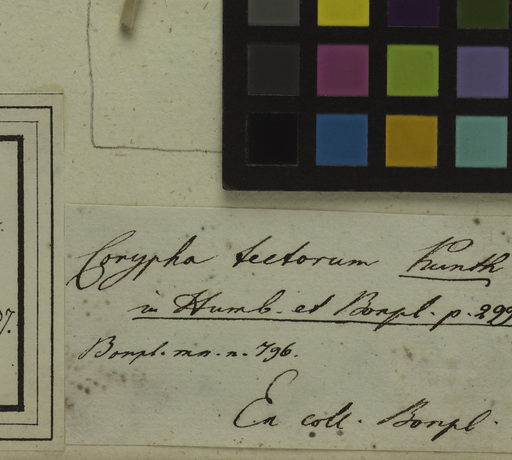 Corypha tectorum Kunth
in Humb. et Bonpl. p. 299
Bonpl. mn. n. 796.
Ex coll. Bonpl.
7.